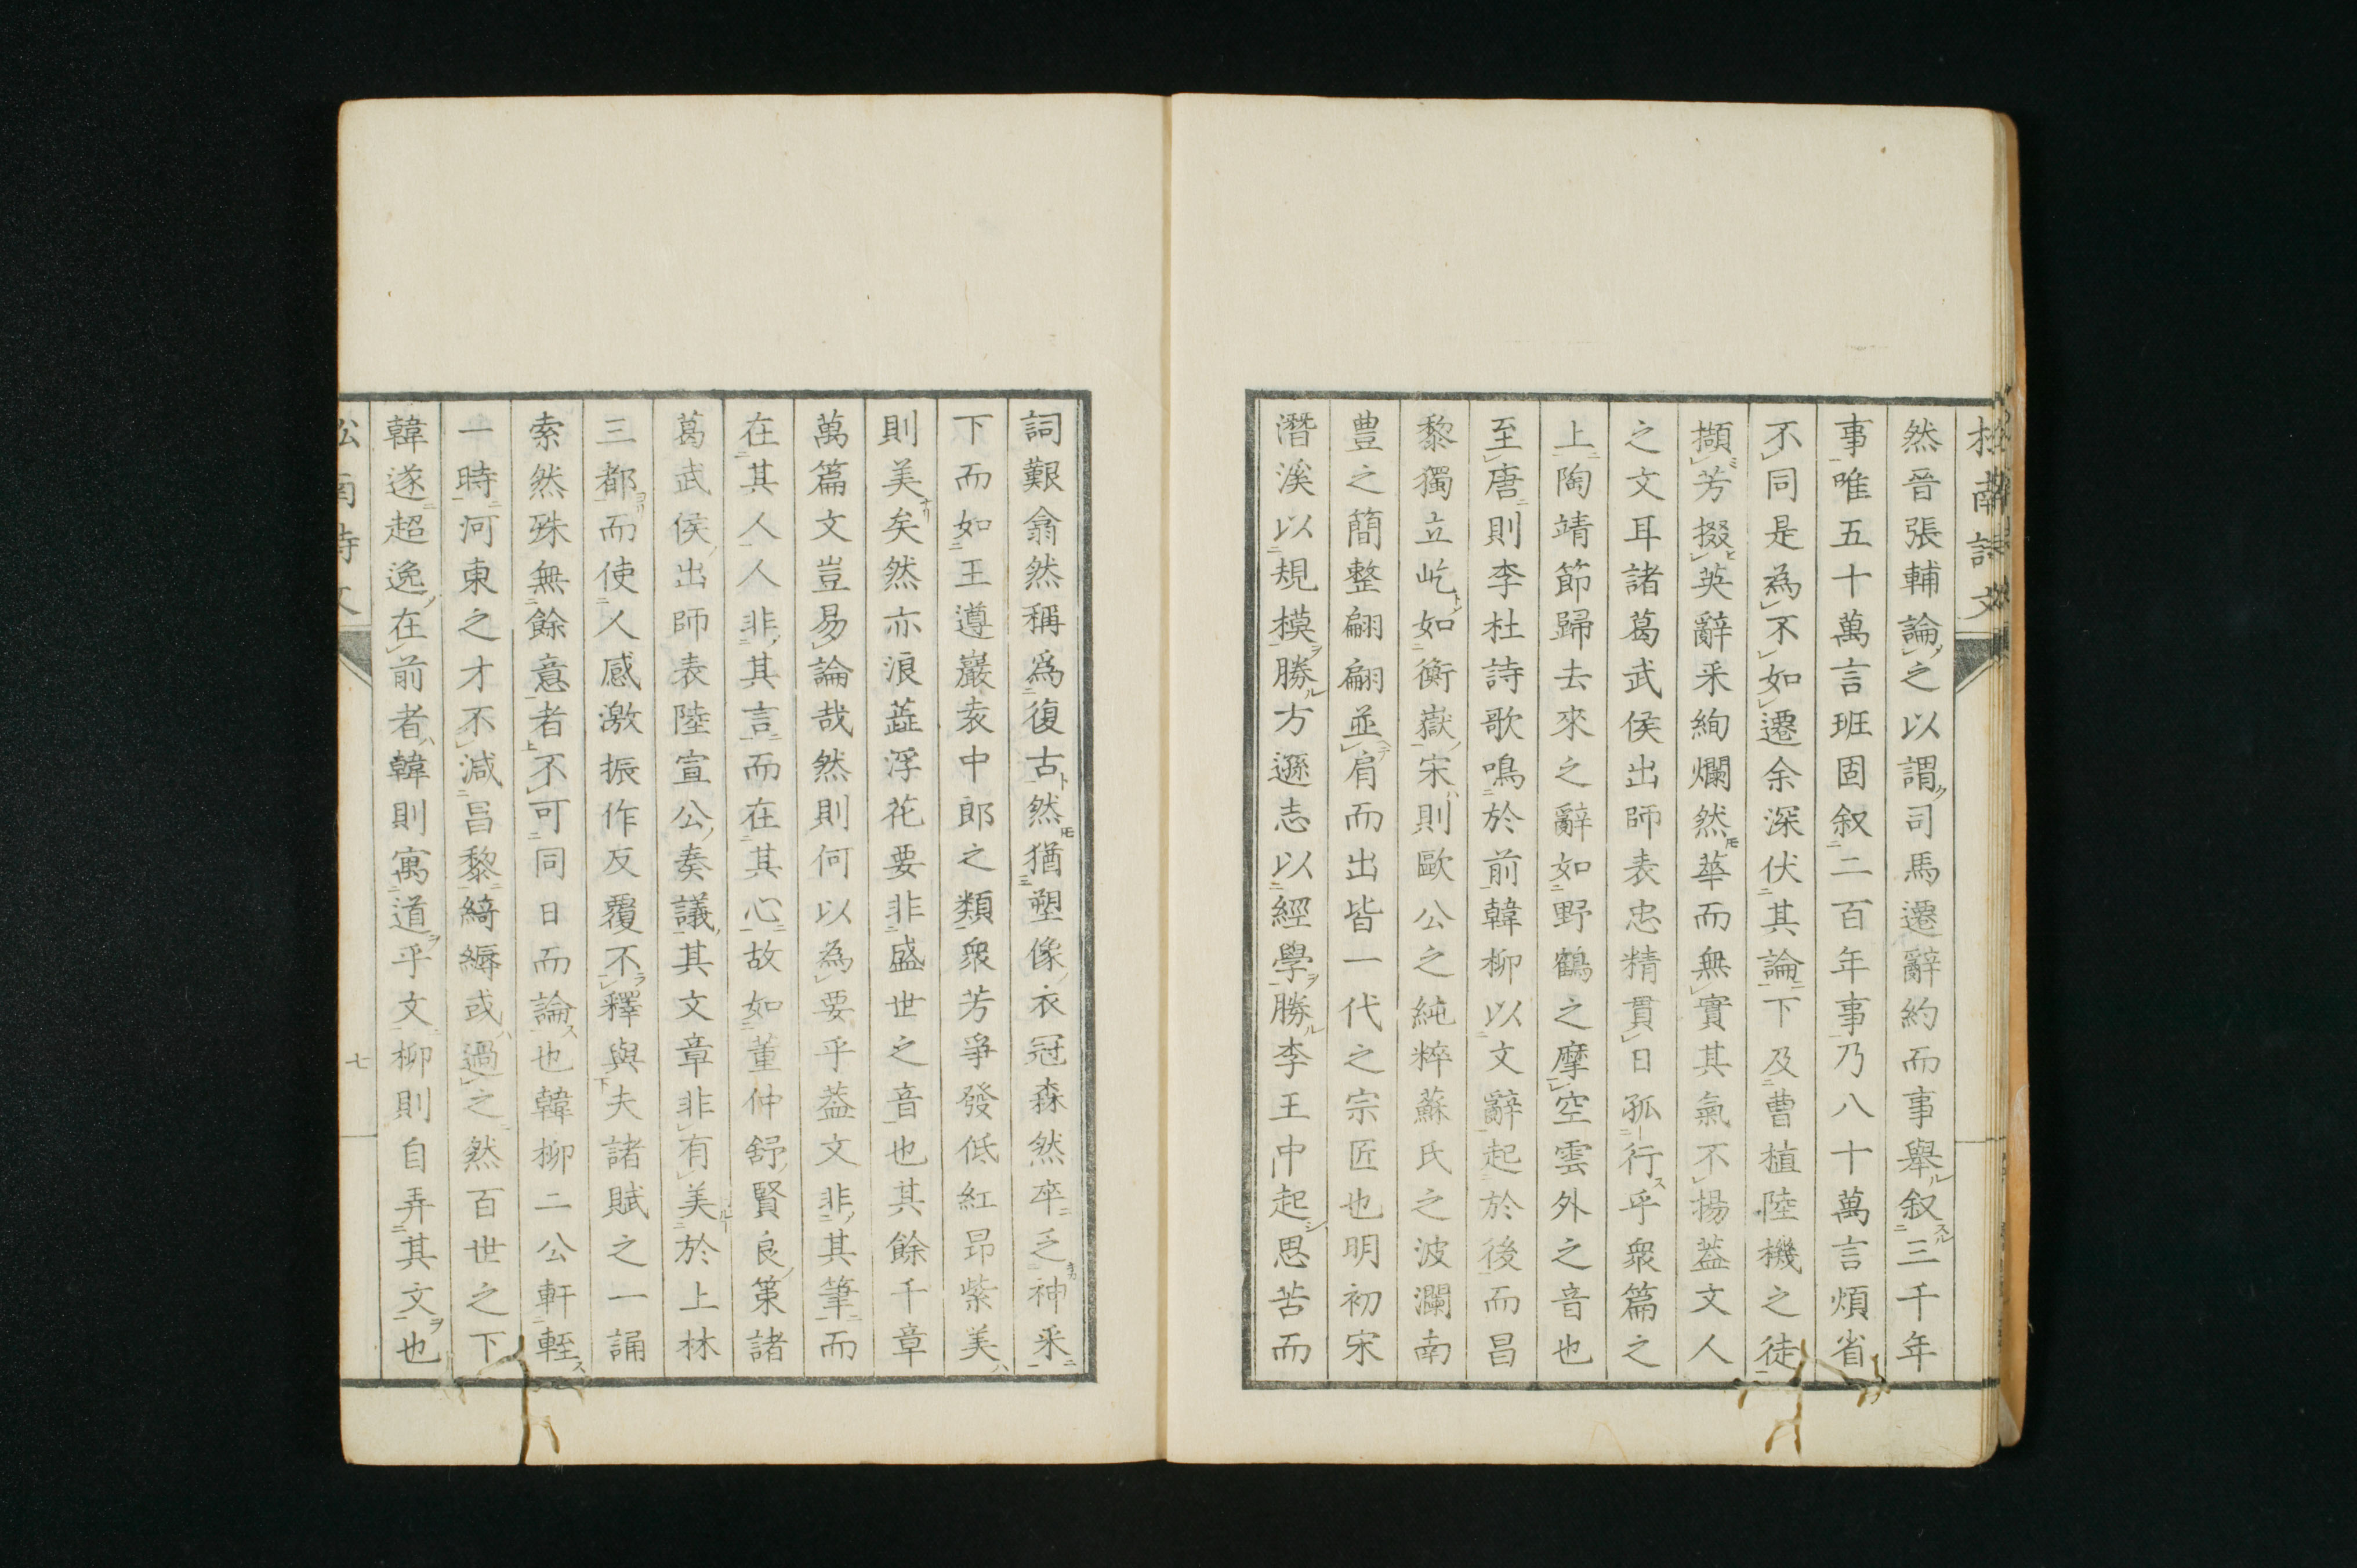 松南詩文
然晉張輔論之以謂司馬遷辭約而事舉叙三千年
事唯五十萬言班固叙二百年事乃八十萬言煩省
不同是為不如遷余深伏其論下及曹植陸機之徒
擷芳掇英辭采絢爛然華而無實其氣不揚葢文人
之文耳諸葛武侯出師表忠精貫日孤行乎衆篇之
上陶靖節歸去來之辭如野鶴之摩空雲外之音也
至唐則李杜詩歌鳴於前韓柳以文辭起於後而昌
黎獨立屹如衡嶽宋則歐公之純粹蘇氏之波瀾南
豊之簡整翩翩並肩而出皆一代之宗匠也明初宋
潛溪以規模勝方遜志以經學勝李王中起思苦而
詞艱翕然稱爲復古然猶塑像衣冠森然卒乏神采
下而如王遵巖袁中郎之類衆芳爭發低紅昂紫美
則美矣然亦浪蘂浮花要非盛世之音也其餘千章
萬篇文豈易論哉然則何以為要乎葢文非其筆而
在其人人非其言而在其心故如董仲舒賢良策諸
葛武侯出師表陸宣公奏議其文章非有美於上林
三都而使人感激振作反覆不釋與夫諸賦之一誦
索然殊無餘意者不可同日而論也韓柳二公軒輊
一時河東之才不減昌黎綺縟或過之然百世之下
韓遂超逸在前者韓則寓道乎文柳則自弄其文也
松南詩文
七